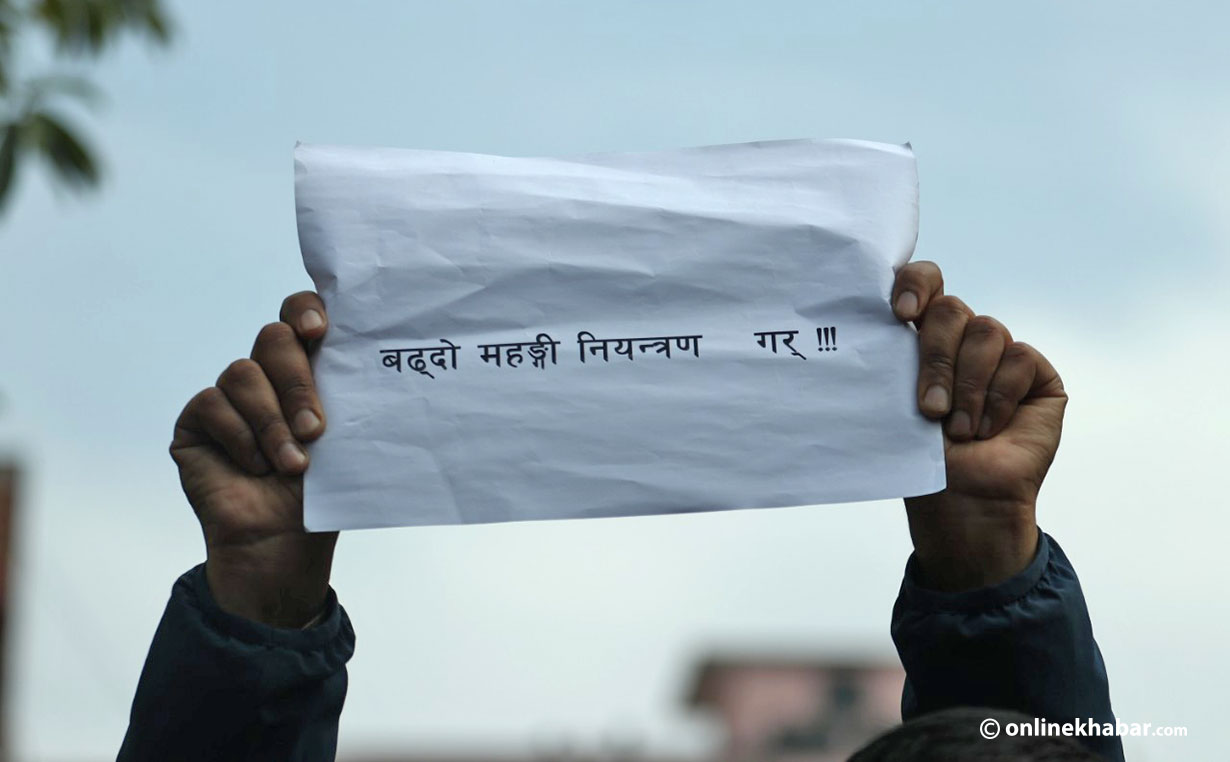 बढ्दो महङ्गी नियन्त्रण गर् !!!
© onlinekhabar.com